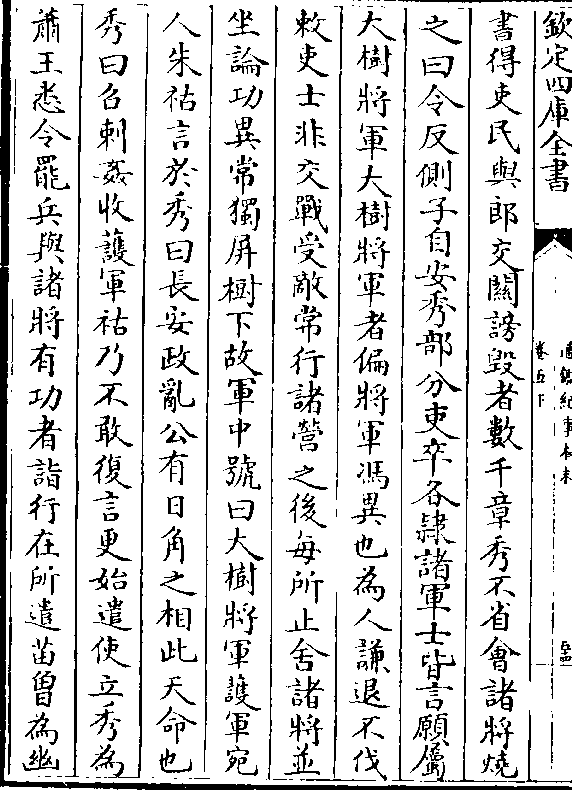 欽定四庫全書
通鑑紀事本末
卷五下
書得吏民與郎交關謗毀者數千章秀不省會諸將燒
之曰令反側子自安秀部分吏卒各隸諸軍士皆言願屬
大樹將軍大樹將軍者偏將軍馮異也為人謙退不伐
敕吏士非交戰受敵常行諸營之後每所止舍諸將並
坐論功異常獨屏樹下故軍中號曰大樹將軍護軍宛
人朱祜言於秀曰長安政亂公有日角之相此天命也
秀曰召刺姦收護軍祜乃不敢復言更始遣使立秀為
蕭王悉令罷兵與諸將有功者詣行在所遣苗曾為幽